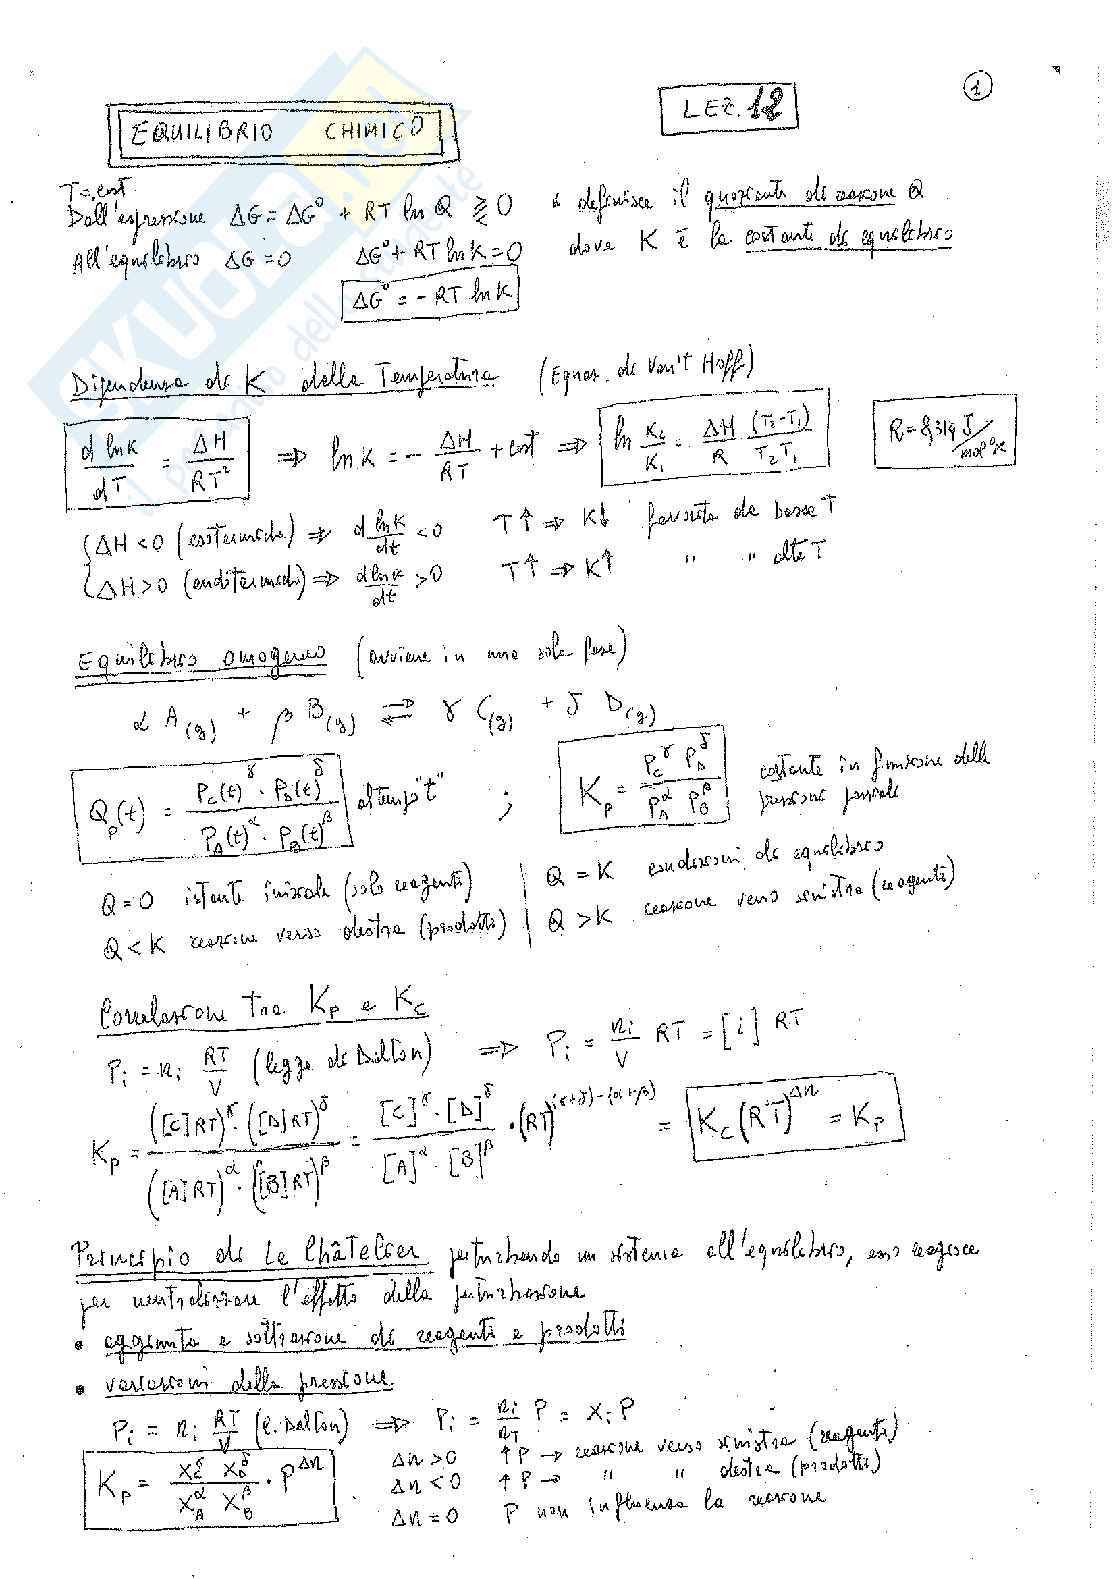 1
LEZ. 12
EQUILIBRIO CHIMICO
T = cost
Dall'espressione ΔG = ΔG° + RT ln Q ⪌ 0 si definisce il quoziente di reazione Q
All'equilibrio ΔG = 0 ΔG° + RT ln K = 0 dove K è la costante di equilibrio
ΔG° = - RT ln K
Dipendenza di K dalla Temperatura (Equaz. di Van't Hoff)
d lnK / dT = ΔH / RT² ⇒ ln K = - ΔH / RT + cost ⇒ ln K₂ / K₁ = ΔH / R (T₂-T₁) / T₂T₁ R = 8,314 J / mol °K
ΔH < 0 (esotermiche) ⇒ d lnK / dt < 0 T↑ ⇒ K↓ favorita da basse T
ΔH > 0 (endotermiche) ⇒ d lnK / dt > 0 T↑ ⇒ K↑ " " alte T
Equilibrio omogeneo (avviene in una sola fase)
α A(g) + β B(g) ⇄ γ C(g) + δ D(g)
Qp(t) = Pc(t)^γ · PD(t)^δ / PA(t)^α · PB(t)^β al tempo "t" ; Kp = Pc^γ PD^δ / PA^α PB^β costante in funzione delle
pressioni parziali
Q = 0 istante iniziale (solo reagenti) | Q = K condizioni di equilibrio
Q < K reazione verso destra (prodotti) | Q > K reazione verso sinistra (reagenti)
Correlazione tra Kp e Kc
Pi = ni RT / V (legge di Dalton) ⇒ Pi = ni / V RT = [i] RT
Kp = ([C]RT)^γ · ([D]RT)^δ / ([A]RT)^α · ([B]RT)^β = [C]^γ · [D]^δ / [A]^α · [B]^β · (RT)^(γ+δ)-(α+β) = Kc (RT)^Δn = Kp
Principio di Le Châtelier perturbando un sistema all'equilibrio, esso reagisce
per neutralizzare l'effetto della perturbazione
• aggiunta e sottrazione di reagenti e prodotti
• variazioni della pressione
Pi = ni RT / V (l. Dalton) ⇒ Pi = ni / nT P = Xi P
Kp = Xc^γ XD^δ / XA^α XB^β · P^Δn
Δn > 0 ↑P → reazione verso sinistra (reagenti)
Δn < 0 ↑P → " " destra (prodotti)
Δn = 0 P non influenza la reazione